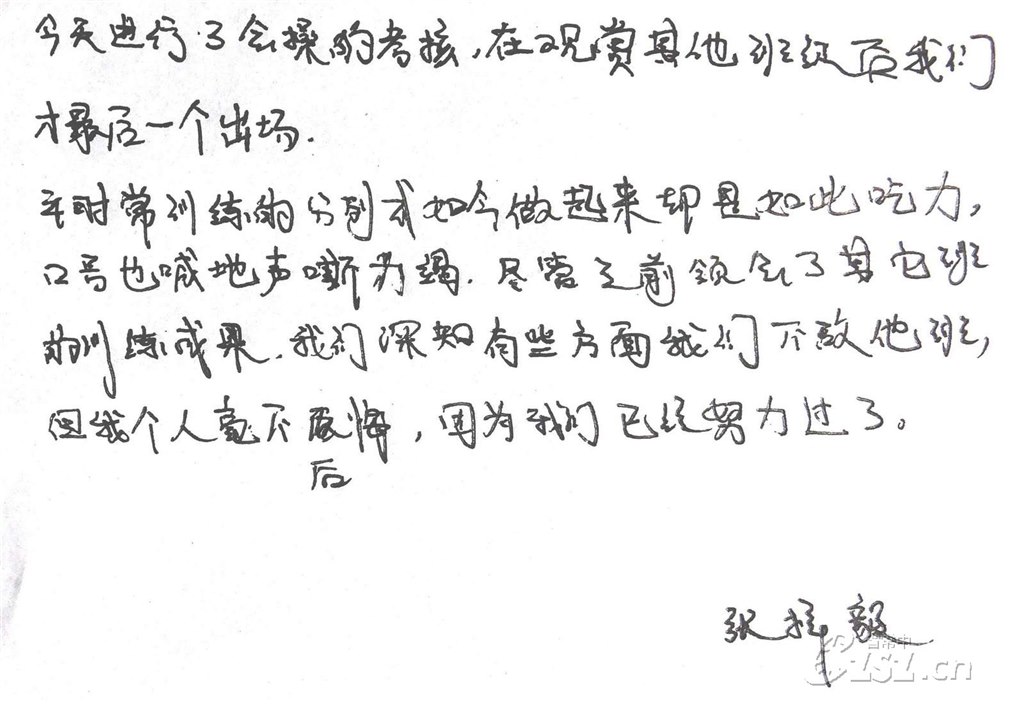 今天进行了会操的考核,在观赏其他班级后我们
才最后一个出场.
平时常训练的分列式如今做起来却是如此吃力,
口号也喊地声嘶力竭.尽管之前领会了其它班
的训练成果.我们深知有些方面我们不敌他班,
但我个人毫不后悔,因为我们已经努力过了。
后
张 毅
晋常中
ZSZ.cn